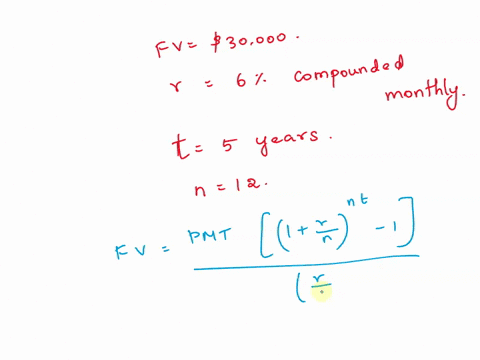 FV = $30,000.
r = 6% compounded
monthly.
t = 5 years.
n = 12.
FV = PMT [(1 + r/n)^nt - 1]
(r/